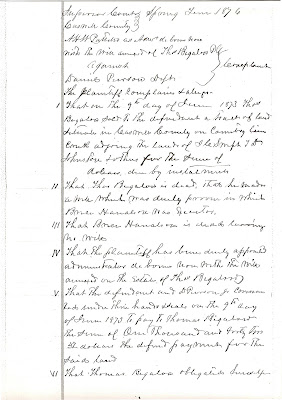 Superior Court Spring Term 1876
Caswell County
as Admr de bonis non
with the Will annexed of Thos Bigalow Plff
against
Complaint
Daniel Dft.
The Plaintiff complains & alleges
I That on the 9th day of June 1873 Thos
Bigalow sold to the defendant a tract of land
situate in Caswell County on Country Line
Creek adjoing the lands of
Johnston & others for the sum of
dollars, due by instalments
II That Thos Bigalow is dead, that he made
a Will which was duly proven in which
was Executor.
III That is dead leaving
no Will
IV That the plaintiff has been duly appointed
administrator de bonis non with the Will
annexed on the estate of Thos Bigalow
V That the defendant and
under their hands & seals on the 9th day
of June 1873 to pay to Thomas Bigalow
the sum of One Thousand and Forty four
dollars the deferred payments for the
said land
VI That Thomas Bigalow obligated himself